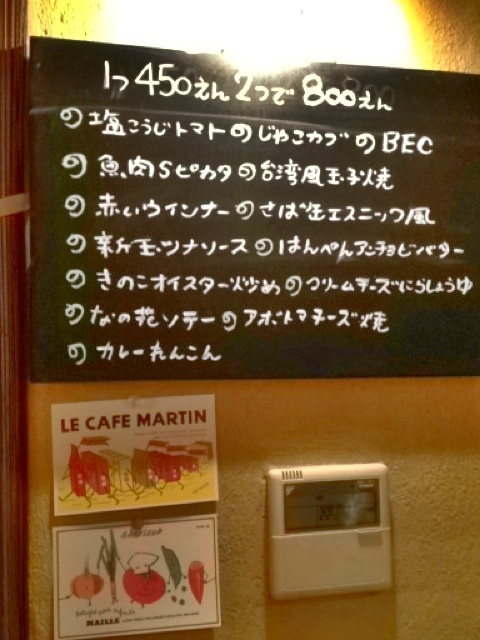 1つ450えん2つで800えん
の塩こうじトマトのじゃこカブのBEC
の魚肉Sピカタの台湾風玉子焼
の赤いウインナーのさば缶エスニック風
の新玉ツナソースのはんぺんアンチョビバター
のきのこオイスター炒めのクリームチーズにらしょうゆ
のなの花ソテーのアボトマチーズ焼
のカレーれんこん
LE CAFE MARTIN
MAILLE